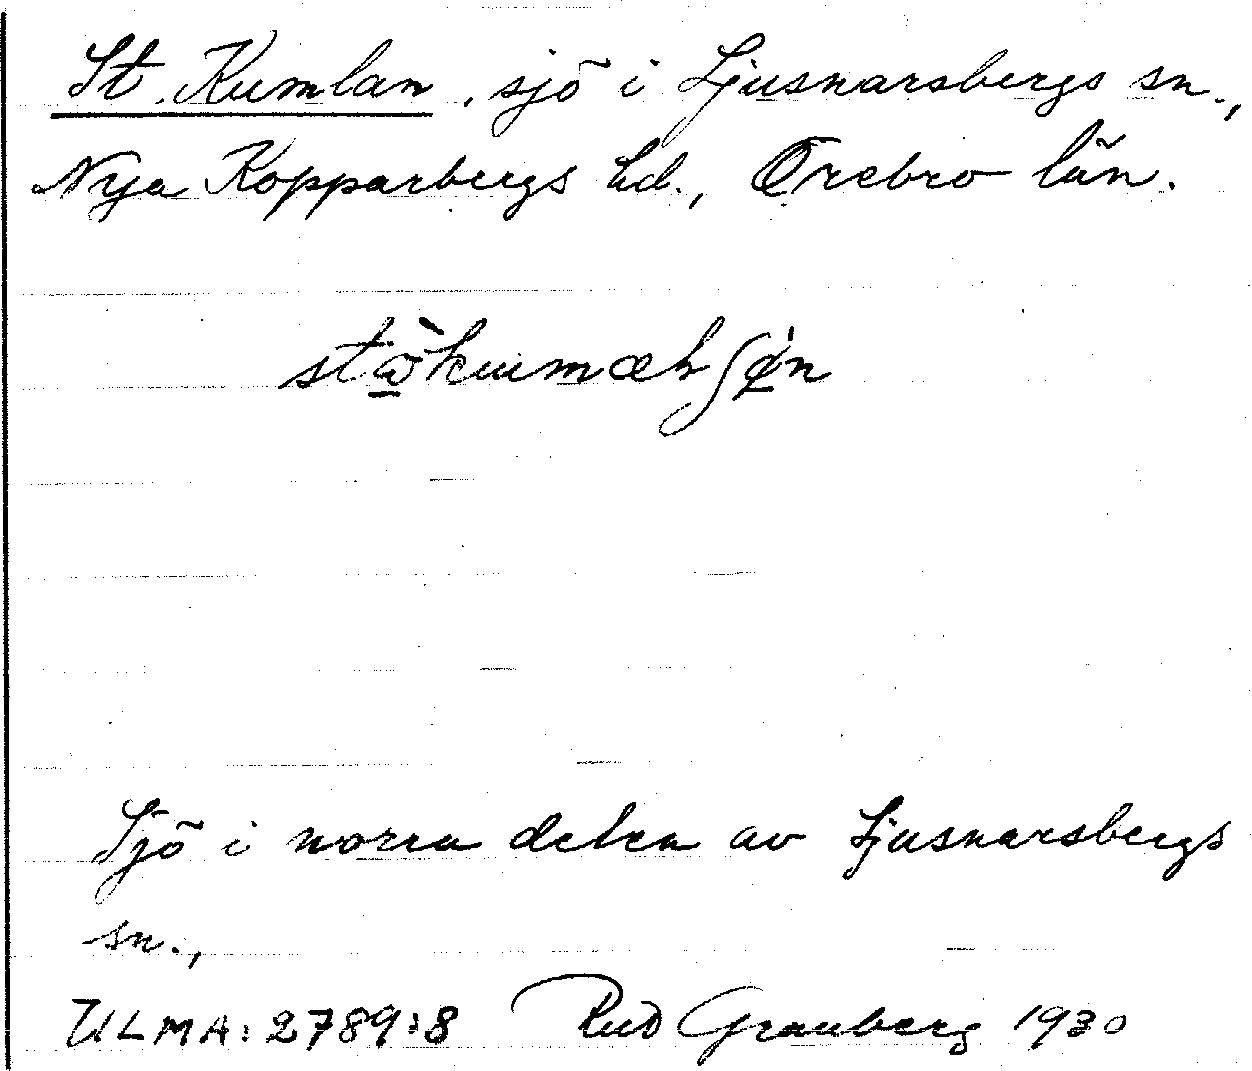 St. Kumlan, sjö i Ljusnarsbergs sn.,
Nya Kopparbergs hd., Örebro län.
Sjö i norra delen av Ljusnarsbergs
sn.,
ULMA: 2789:8 Rud Granberg 1930